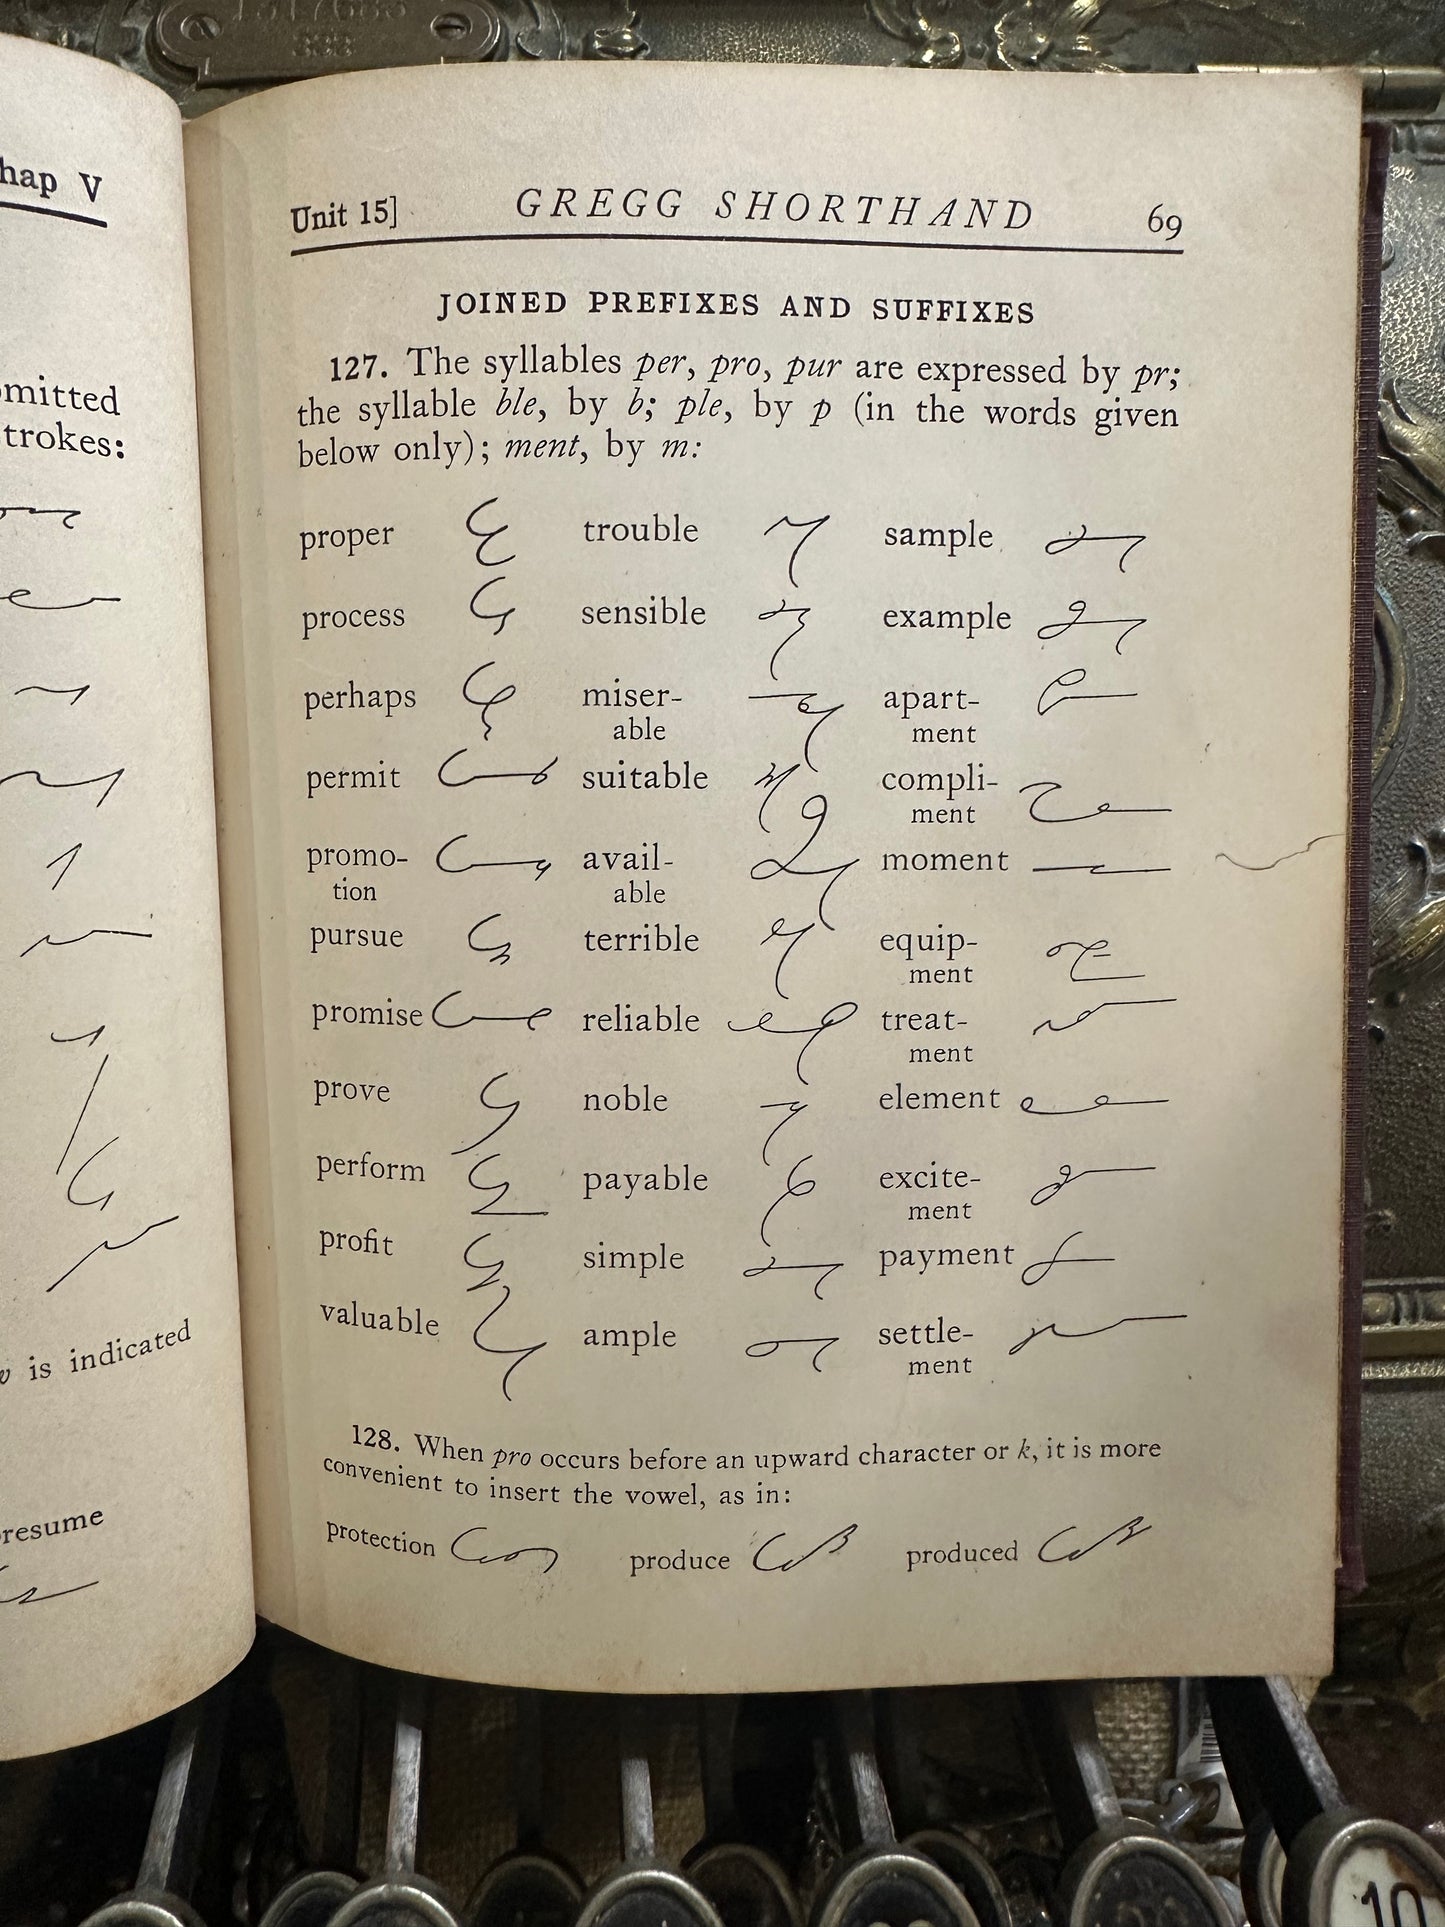 hap V
omitted
trokes:
is indicated
resume
Unit 15] GREGG SHORTHAND 69
JOINED PREFIXES AND SUFFIXES
127. The syllables per, pro, pur are expressed by pr;
the syllable ble, by b; ple, by p (in the words given
below only); ment, by m:
proper trouble sample
process sensible example
perhaps miser- apart-
able ment
permit suitable compli-
ment
promo- avail- moment
tion able
pursue terrible equip-
ment
promise reliable treat-
ment
prove noble element
perform payable excite-
ment
profit simple payment
valuable ample settle-
ment
128. When pro occurs before an upward character or k, it is more
convenient to insert the vowel, as in:
protection produce produced
10